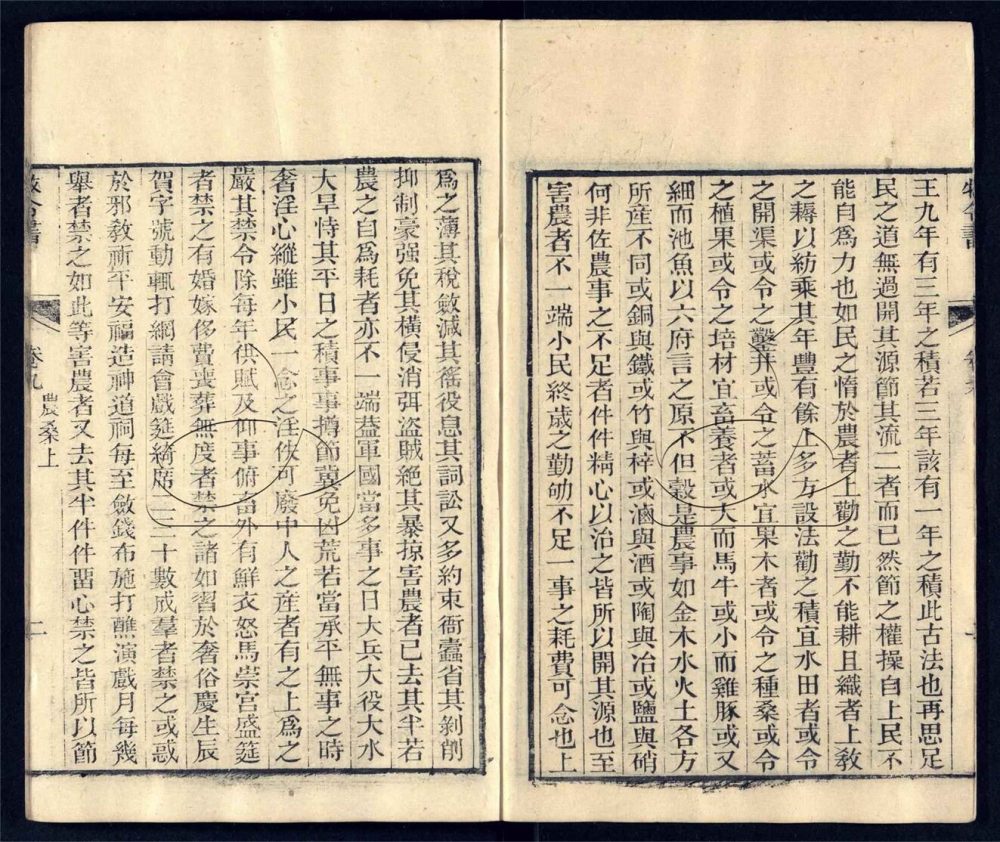 牧令書
卷九
王九年有三年之積若三年該有一年之積此古法也再思足
民之道無過開其源節其流二者而已然節之權操自上民不
能自爲力也如民之惰於農者上勸之勤不能耕且織者上敎
之耨以紡乘其年豐有餘上多方設法勸之積宜水田者或令
之開渠或令之鑿井或令之蓄水宜果木者或令之種桑或令
之植果或令之培材宜畜養者或大而馬牛或小而雞豚或又
細而池魚以六府言之原不但穀是農事如金木水火土各方
所產不同或銅與鐵或竹與梓或滷與酒或陶與冶或鹽與硝
何非佐農事之不足者件件精心以治之皆所以開其源也至
害農者不一端小民終歲之勤劬不足一事之耗費可念也上
爲之薄其稅斂減其徭役息其詞訟又多約束衙蠹省其剝削
抑制豪强免其橫侵消弭盜賊絶其暴掠害農者已去其半若
農之自爲耗者亦不一端葢軍國當多事之日大兵大役大水
大旱恃其平日之積事事撙節冀免凶荒若當承平無事之時
奢淫心縱雖小民一念之淫佚可廢中人之產者有之上爲之
嚴其禁令除每年供賦及仰事俯畜外有鮮衣怒馬崇宮盛筵
者禁之有婚嫁侈費喪葬無度者禁之諸如習於奢俗慶生辰
賀字號動輒打網請會戲筵綺席二三十數成羣者禁之或惑
於邪敎祈平安福造神道祠每至斂錢布施打醮演戲月每幾
舉者禁之如此等害農者又去其半件件畱心禁之皆所以節
牧令書
卷九
農桑上
二